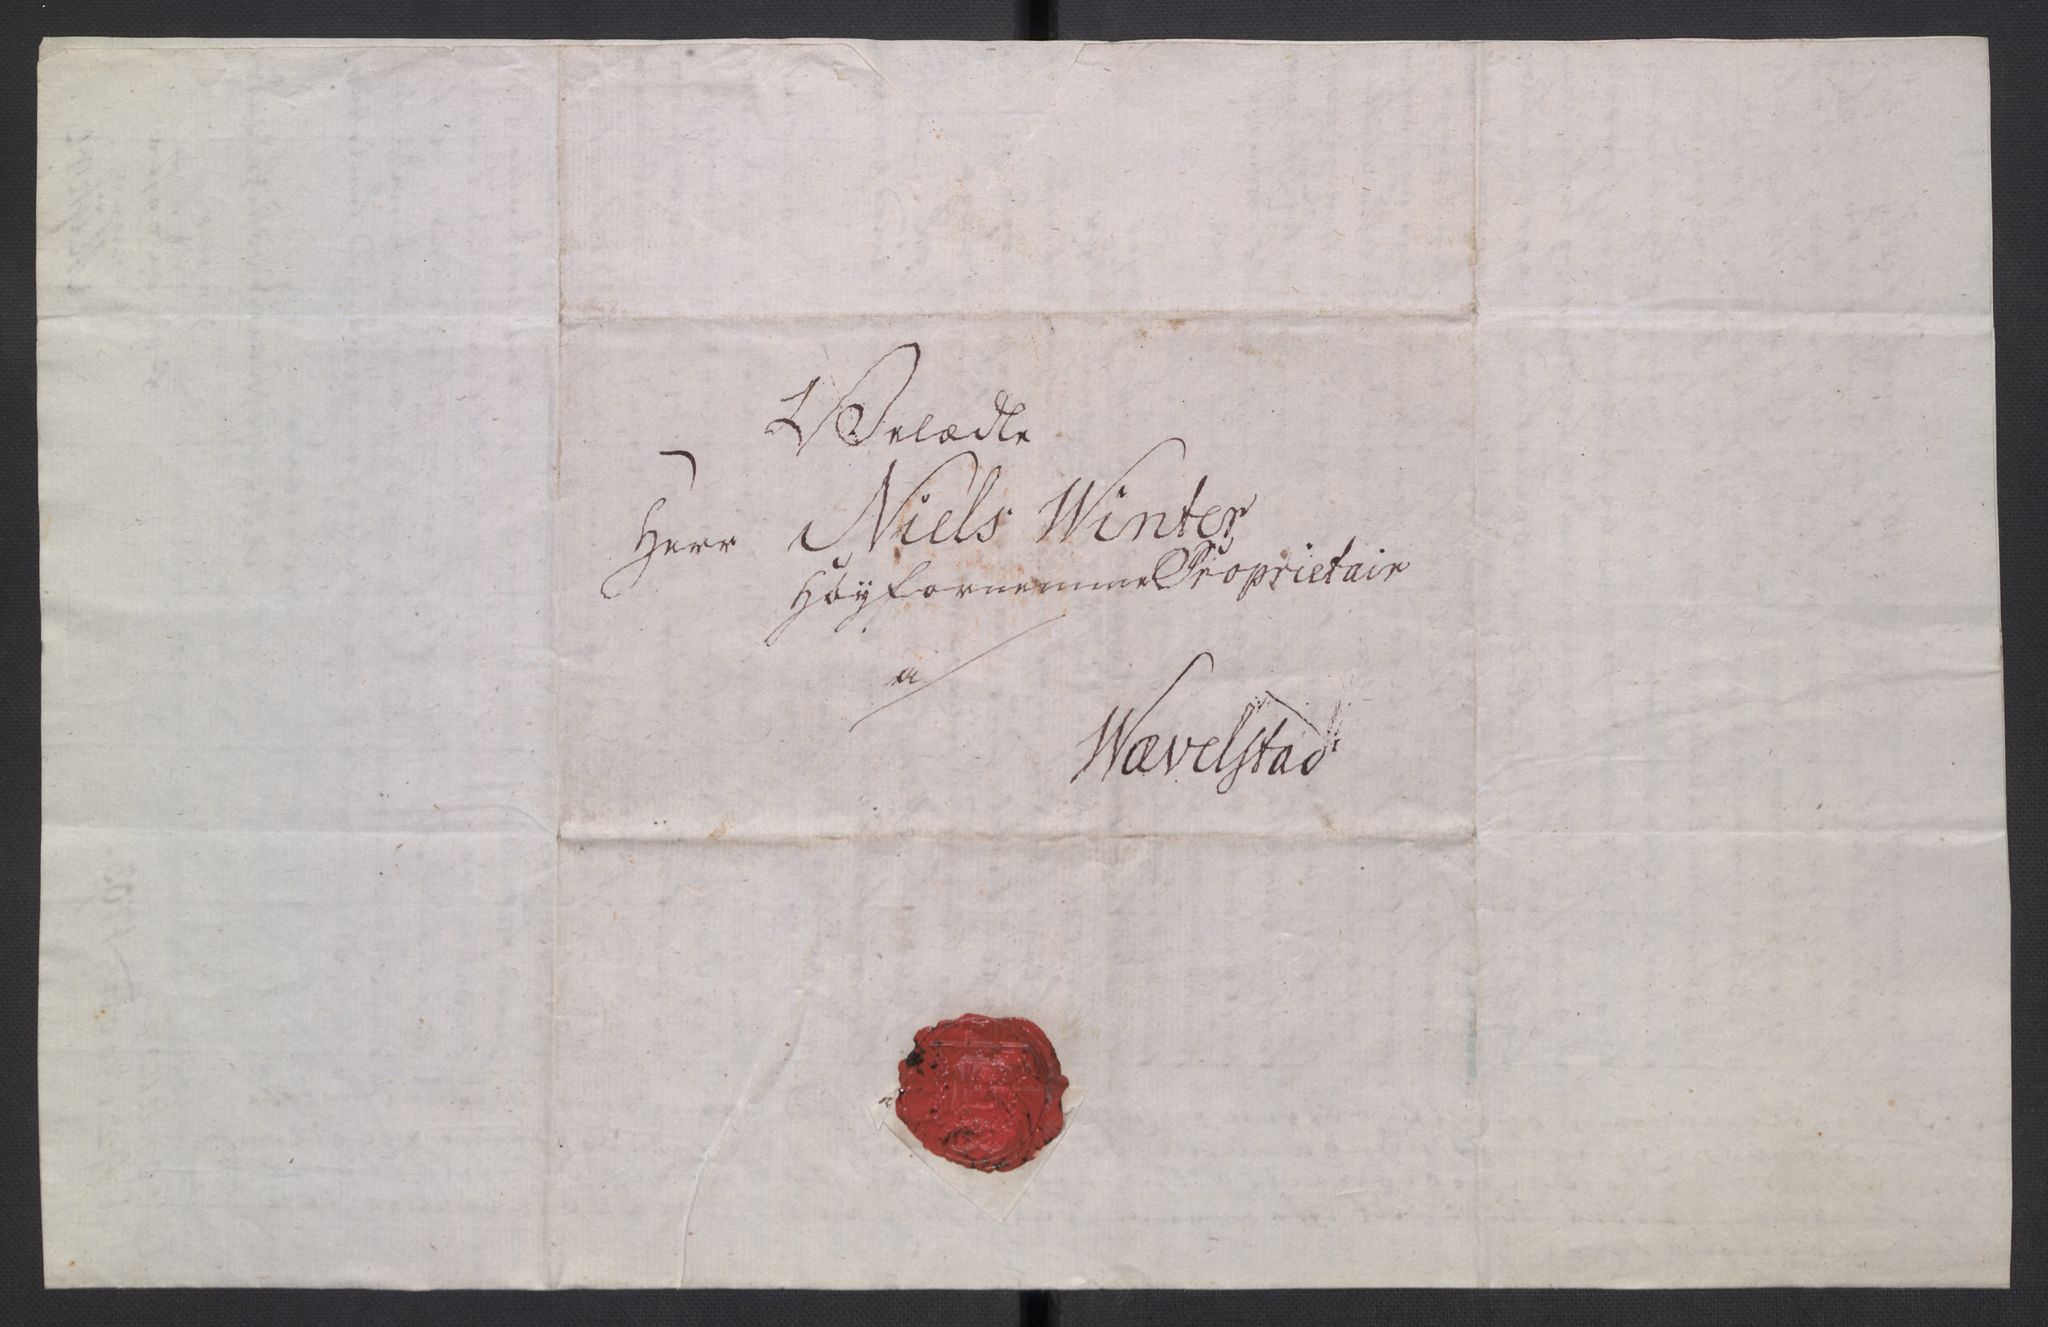 Velædle
Herr Niels Winter
Høyfornemme Proprietair
a
Wævelstad